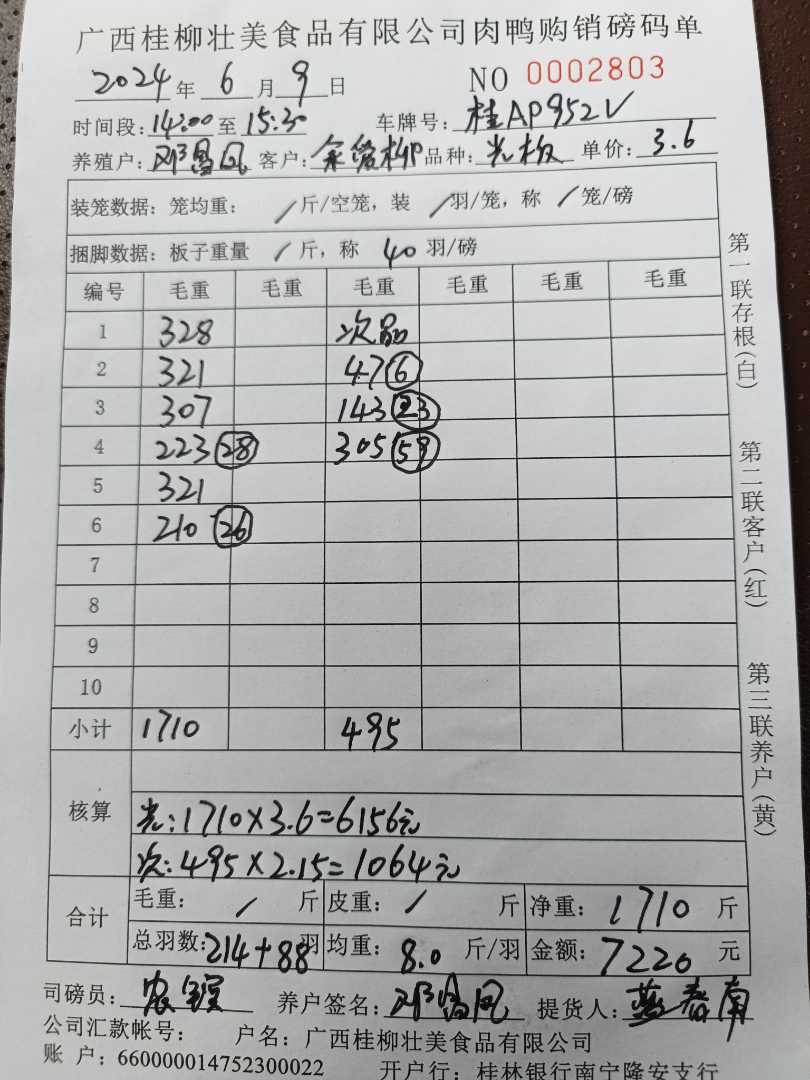 广西桂柳壮美食品有限公司肉鸭购销磅码单
2024年 6月 9日 NO 0002803
时间段: 14:00 至 15:30 车牌号: 桂AP952V
养殖户: 邓昌凤 客户: 柳 品种: 光板 单价: 3.6
装笼数据: 笼均重: / 斤/空笼, 装 / 羽/笼, 称 / 笼/磅
捆脚数据: 板子重量 / 斤, 称 40 羽/磅
编号 毛重 毛重 毛重 毛重 毛重 毛重
1 328 次品
2 321 47 6
3 307 143 23
4 223 28 305 59
5 321
6 210 26
7
8
9
10
小计 1710 495
核算
光: 1710×3.6=6156元
次: 495×2.15=1064元
合计
毛重: / 斤 皮重: / 斤 净重: 1710 斤
总羽数: 214+88羽 均重: 8.0 斤/羽 金额: 7220 元
司磅员: 农 养户签名: 邓昌凤 提货人: 蓝春南
公司汇款帐号: 户名: 广西桂柳壮美食品有限公司
账 户: 660000014752300022 开户行: 桂林银行南宁隆安支行
第一联存根(白)
第二联客户(红)
第三联养户(黄)